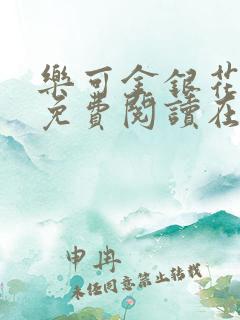 樂可金銀花
免費閱讀在
申冉
未經同意禁止轉載